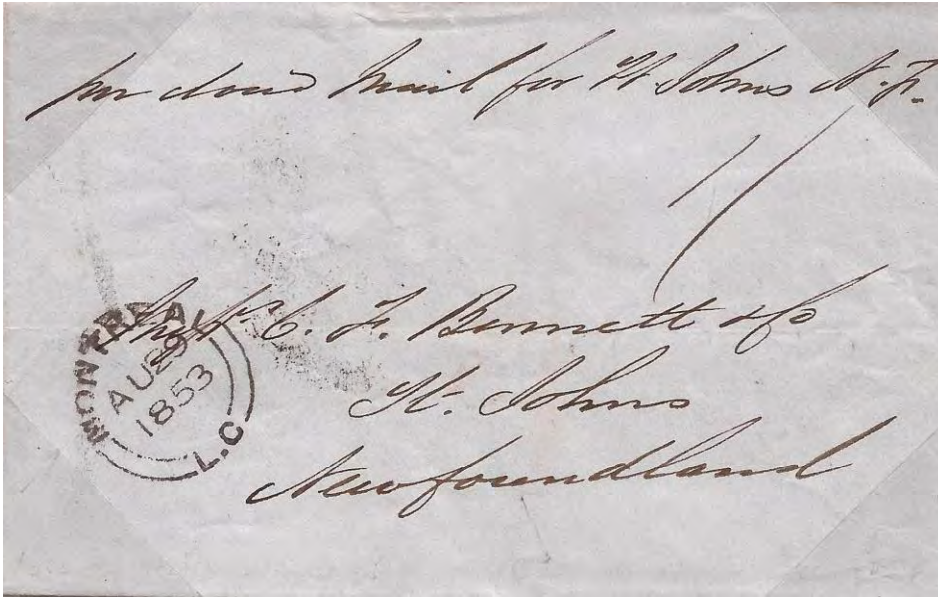 per closed Mail for St Johns N.F.
1/
Messrs C. F. Bennett & Co
St. Johns
Newfoundland
MONTREAL
AU 29
1853
L.C